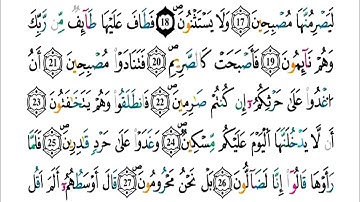 لَيَصْرِمُنَّهَا مُصْبِحِينَ ⑰ وَلَا يَسْتَثْنُونَ ⑱ فَطَافَ عَلَيْهَا طَآئِفٌ مِّن رَّبِّكَ
وَهُمْ نَآئِمُونَ ⑲ فَأَصْبَحَتْ كَالصَّرِيمِ ⑳ فَتَنَادَوْا مُصْبِحِينَ ㉑ أَنُ
اغْدُوا عَلَىٰ حَرْثِكُمُۥ إِن كُنتُمْ صَٰرِمِينَ ㉒ فَانطَلَقُوا وَهُمْ يَتَخَٰفَتُونَ ㉓
أَن لَّا يَدْخُلَنَّهَا الْيَوْمَ عَلَيْكُم مِّسْكِينٌ ㉔ وَغَدَوْا عَلَىٰ حَرْدٍ قَٰدِرِينَ ㉕ فَلَمَّا
رَأَوْهَا قَالُوا إِنَّا لَضَآلُّونَ ㉖ بَلْ نَحْنُ مَحْرُومُونَ ㉗ قَالَ أَوْسَطُهُمُۥ أَلَمْ أَقُل